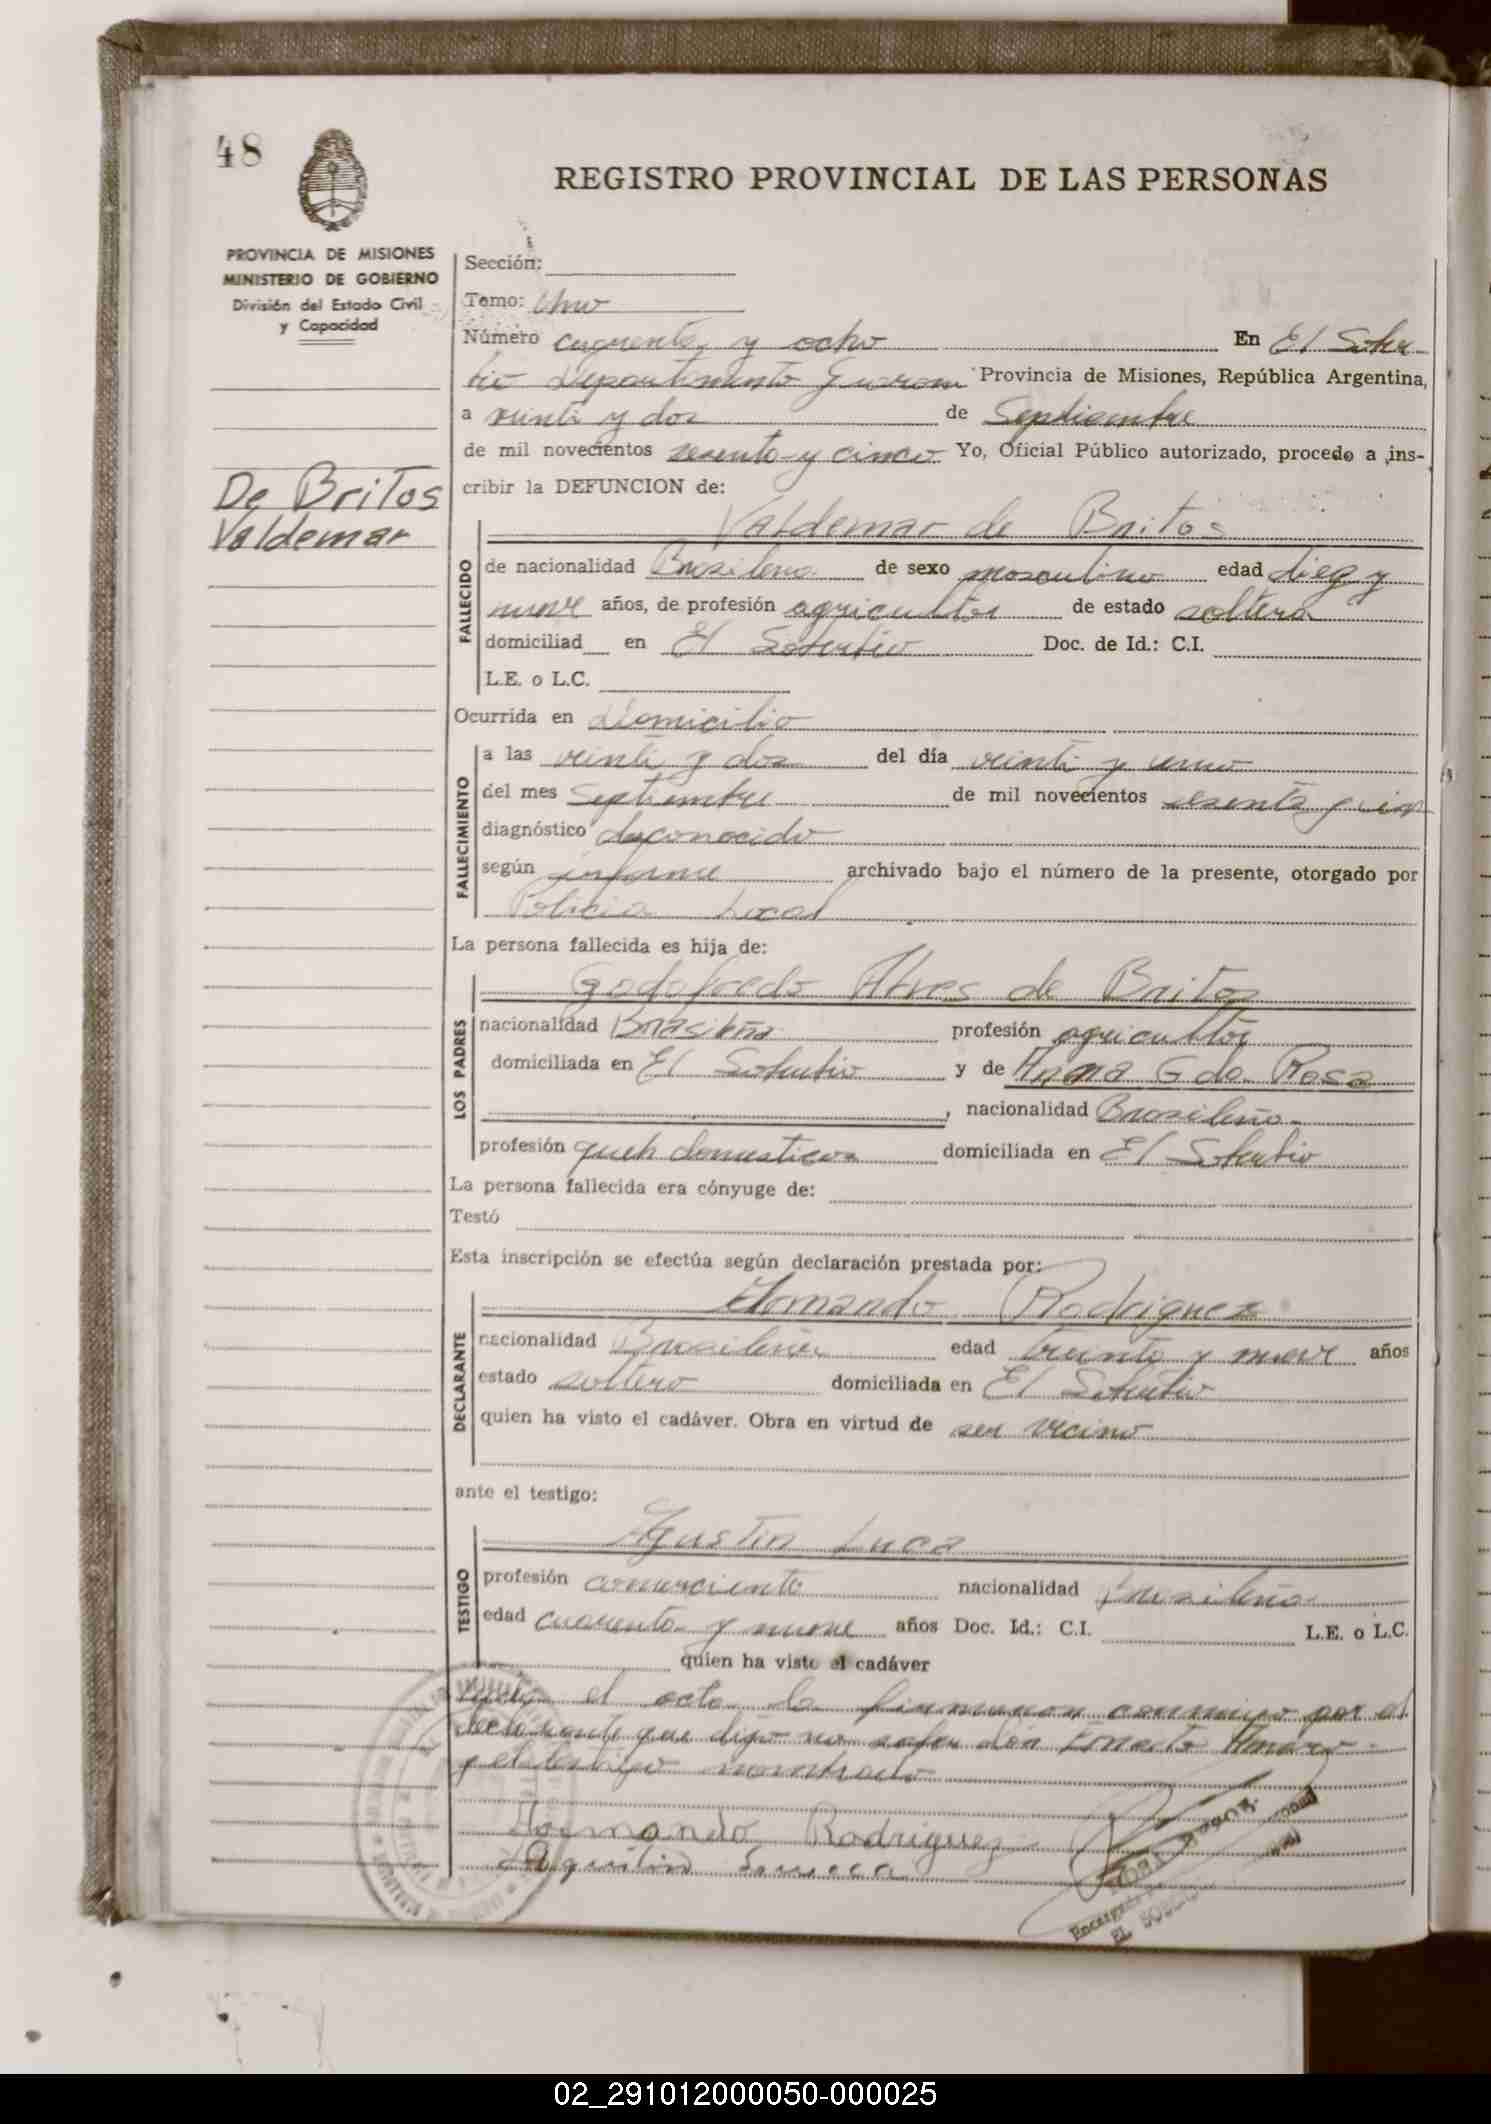 48
REGISTRO PROVINCIAL DE LAS PERSONAS
PROVINCIA DE MISIONES
MINISTERIO DE GOBIERNO
División del Estado Civil
y Capacidad
De Britos
Valdemar
Sección:
Tomo: Uno
Número cuarenta y ocho En El Sober-
bio Departamento Guarani Provincia de Misiones, República Argentina,
a veinti y dos de Septiembre
de mil novecientos sesenta y cinco Yo, Oficial Público autorizado, procedo a ins-
cribir la DEFUNCION de:
Valdemar de Britos
FALLECIDO
de nacionalidad Brasileña de sexo masculino edad diez y
nueve años, de profesión agricultor de estado soltero
domiciliad en El Soberbio Doc. de Id.: C.I.
L.E. o L.C.
Ocurrida en Domicilio
FALLECIMIENTO
a las veinti y dos del día veinti y uno
del mes Septiembre de mil novecientos sesenta y cin
diagnóstico desconocido
según informe archivado bajo el número de la presente, otorgado por
Policia Local
La persona fallecida es hija de:
LOS PADRES
Godofredo Alves de Britos
nacionalidad Brasileña profesión agricultor
domiciliada en El Soberbio y de Anna G da Rosa
, nacionalidad Brasileña
profesión queh domesticos domiciliada en El Soberbio
La persona fallecida era cónyuge de:
Testó
Esta inscripción se efectúa según declaración prestada por:
DECLARANTE
Hormando Rodriguez
nacionalidad Brasileña edad treinta y nueve años
estado soltero domiciliada en El Soberbio
quien ha visto el cadáver. Obra en virtud de ser vecino
ante el testigo:
TESTIGO
Agustin Luca
profesión comerciante nacionalidad Brasileña
edad cuarenta y nueve años Doc. Id.: C.I. L.E. o L.C.
quien ha visto el cadáver
el acta la firmaron conmigo por el
declarante que dijo no saber Don Ernesto Amaro
y el testigo nombrado
Hormando Rodriguez
Agustin
Encargado
EL SOBERBIO
02_291012000050-000025